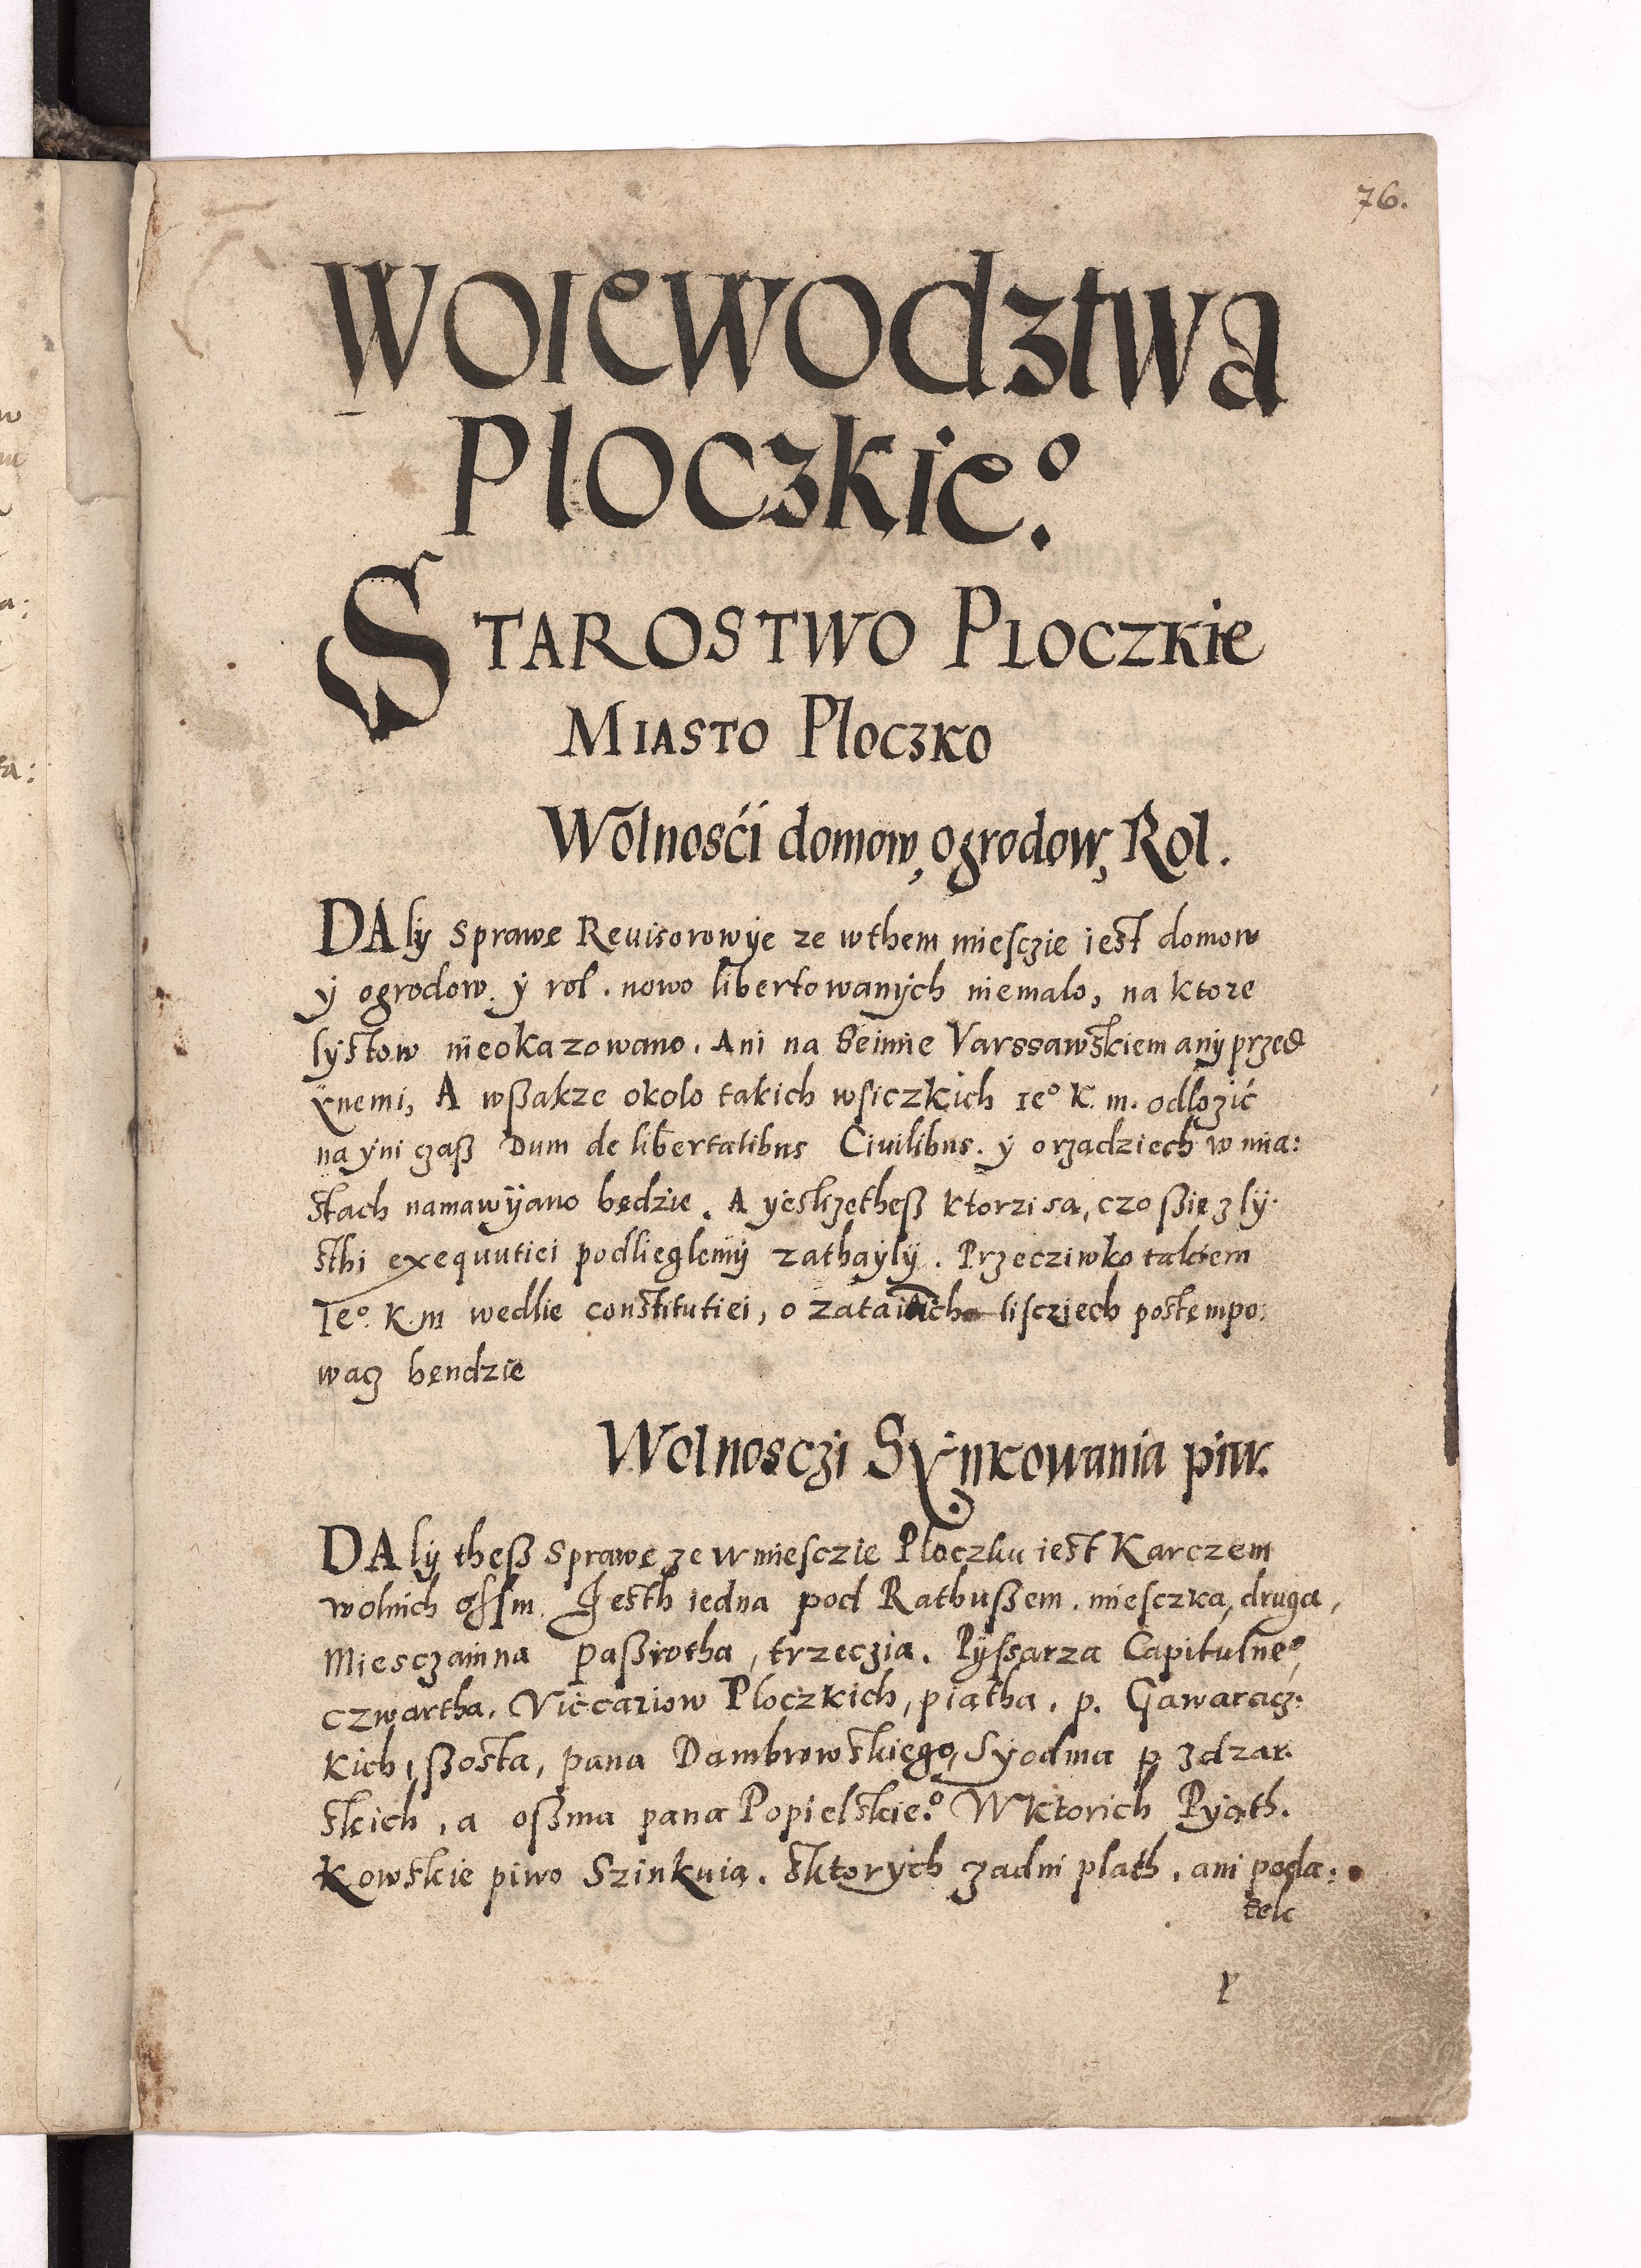 76.
Woiewodztwa
Ploczkie.º
STAROSTWO PLOCZKIE
MIASTO Ploczko
Wolnośći domow, ogrodow, Rol.
DAly sprawę Reuisorowye ze wthem miesczie iest domow
ÿ ogrodow. ÿ rol. nowo libertowanÿch niemalo, na ktore
lystow nieokazowano. Ani na Seimie Varssawskiem anÿ przed
ynemi, A wßakze okolo takich wsiczkich Ieº K. m. odlozić
na ÿni czaß Dum de libertatibus Ciuilibus. ÿ orzadziech w mia:
stach namawÿano będzie. A yeslizetheß ktorzi sa, czo ßię z lÿ.
sthi exequutiei podlieglemÿ zathaÿlÿ. Przecziwko takiem
Ieº. K. m wedlie constitutiei, o zataionich liscziech postempo:
wacz bendzie
Wolnosczi Sÿnkowania piw.
DAlÿ theß sprawę ze w miesczie Ploczku iest Karczem
wolnich ossm. Jesth iedna pod Rathußem. miesczka, druga,
Miesczanina Paßiotha, trzeczia. Pÿssarza Capitulneº,
czwartha. Viccariow Ploczkich, piatha. p. Gawaracz.
kich, ßosta, pana Dambrowskiego, Syodma p zdzar.
skich, a oßma pana Popielskie.º Wktorich Pÿąth.
kowskie piwo Szinkuią. Sktorych zadni plath. ani poda:
tek